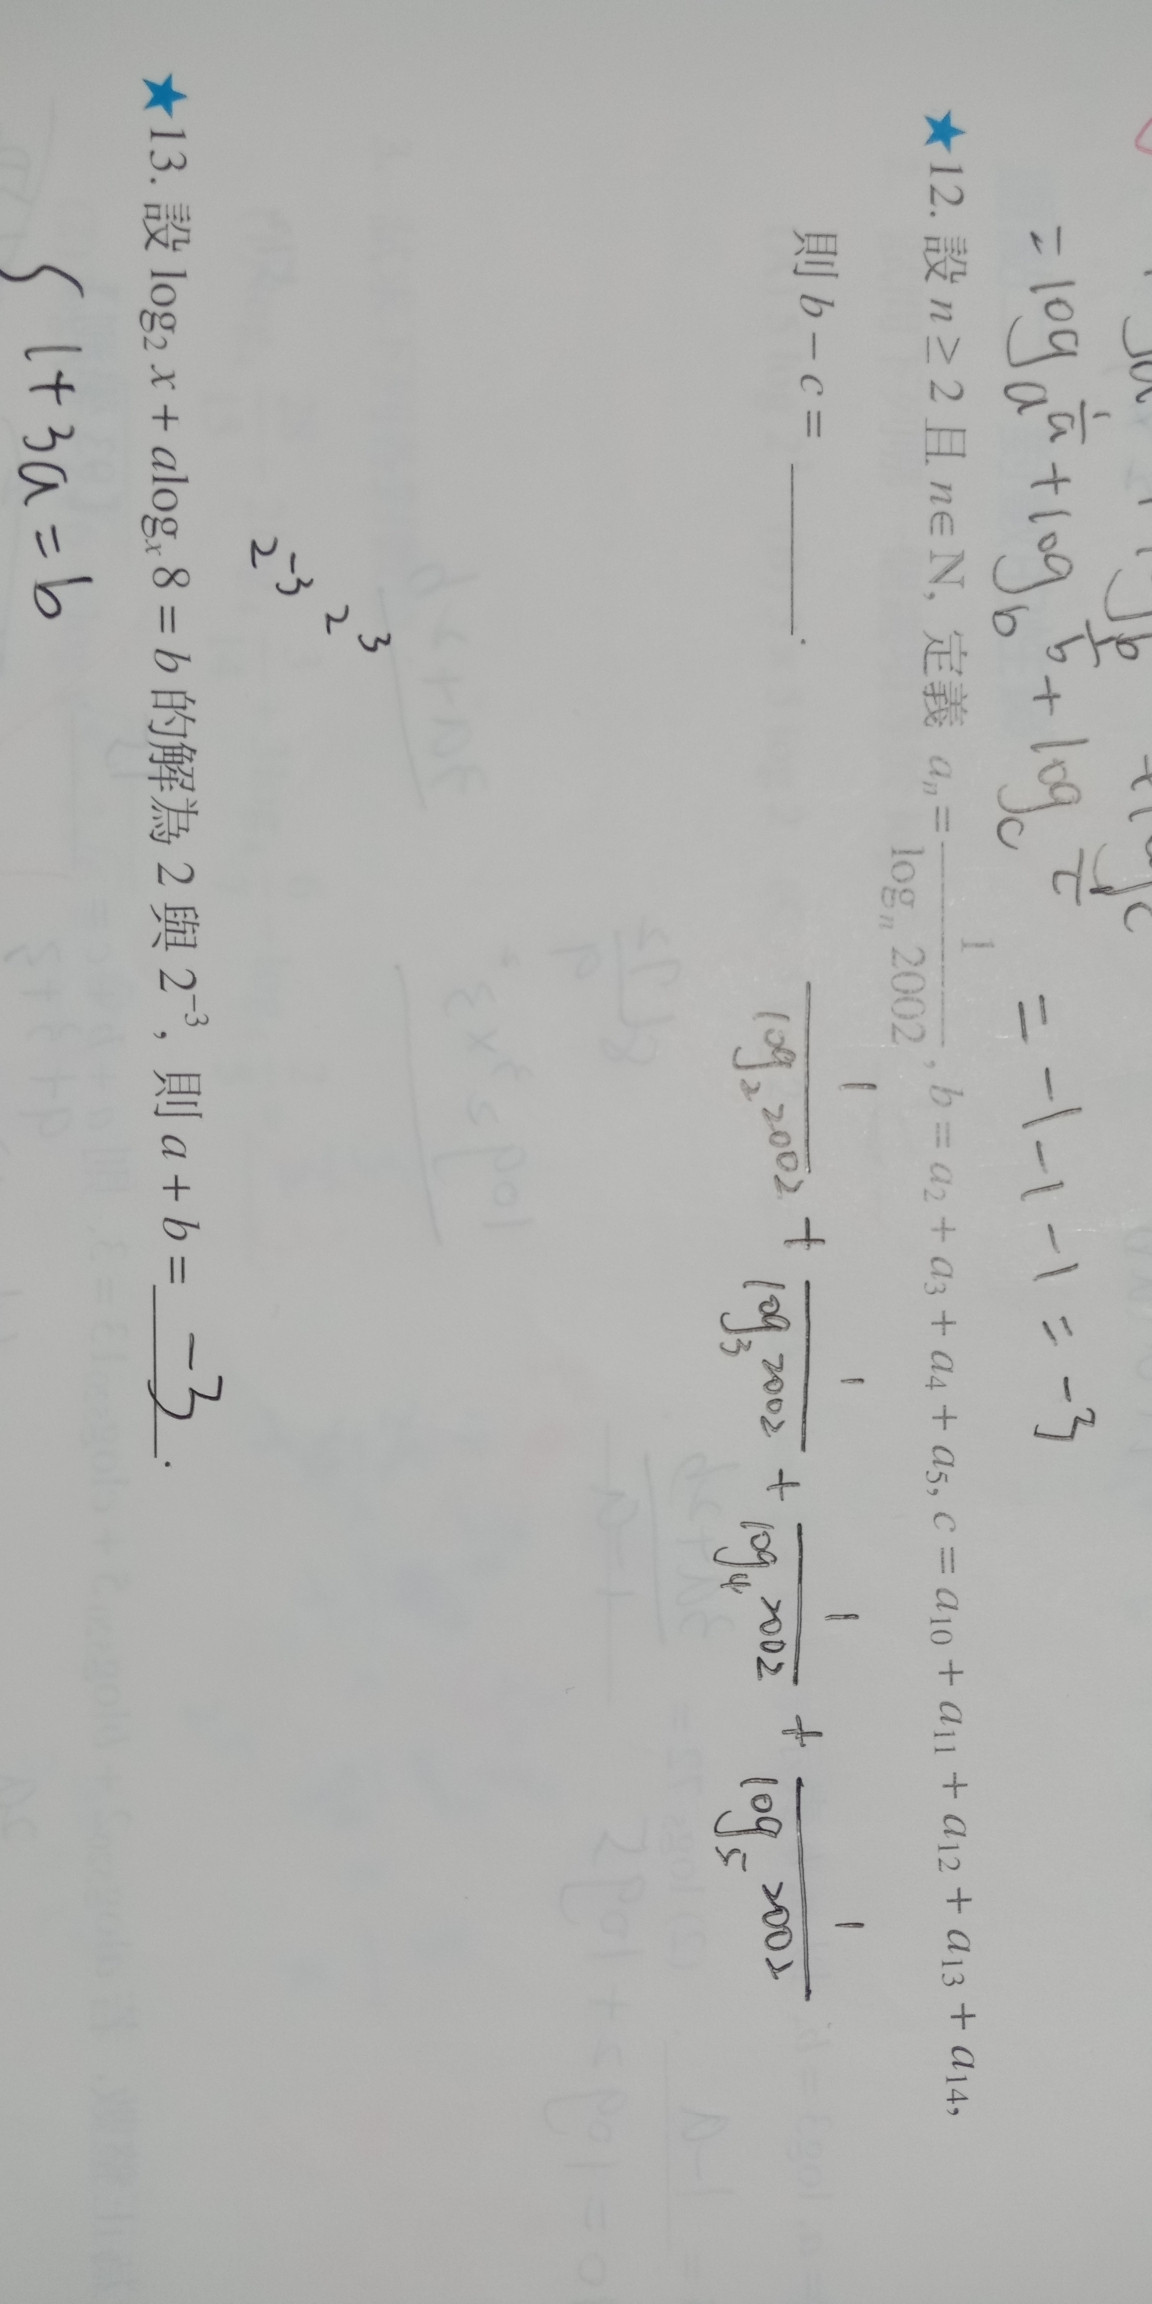 = log_a 1/a + log_b 1/b + log_c 1/c = -1 -1 -1 = -3
★12. 設 n ≥ 2 且 n ∈ N, 定義 a_n = 1/log_n 2002, b = a_2 + a_3 + a_4 + a_5, c = a_10 + a_11 + a_12 + a_13 + a_14,
則 b - c = ______.
1/log_2 2002 + 1/log_3 2002 + 1/log_4 2002 + 1/log_5 2002
2^3
2^-3
★13. 設 log_2 x + alog_x 8 = b 的解為 2 與 2^-3, 則 a + b = -3.
{ 1 + 3a = b